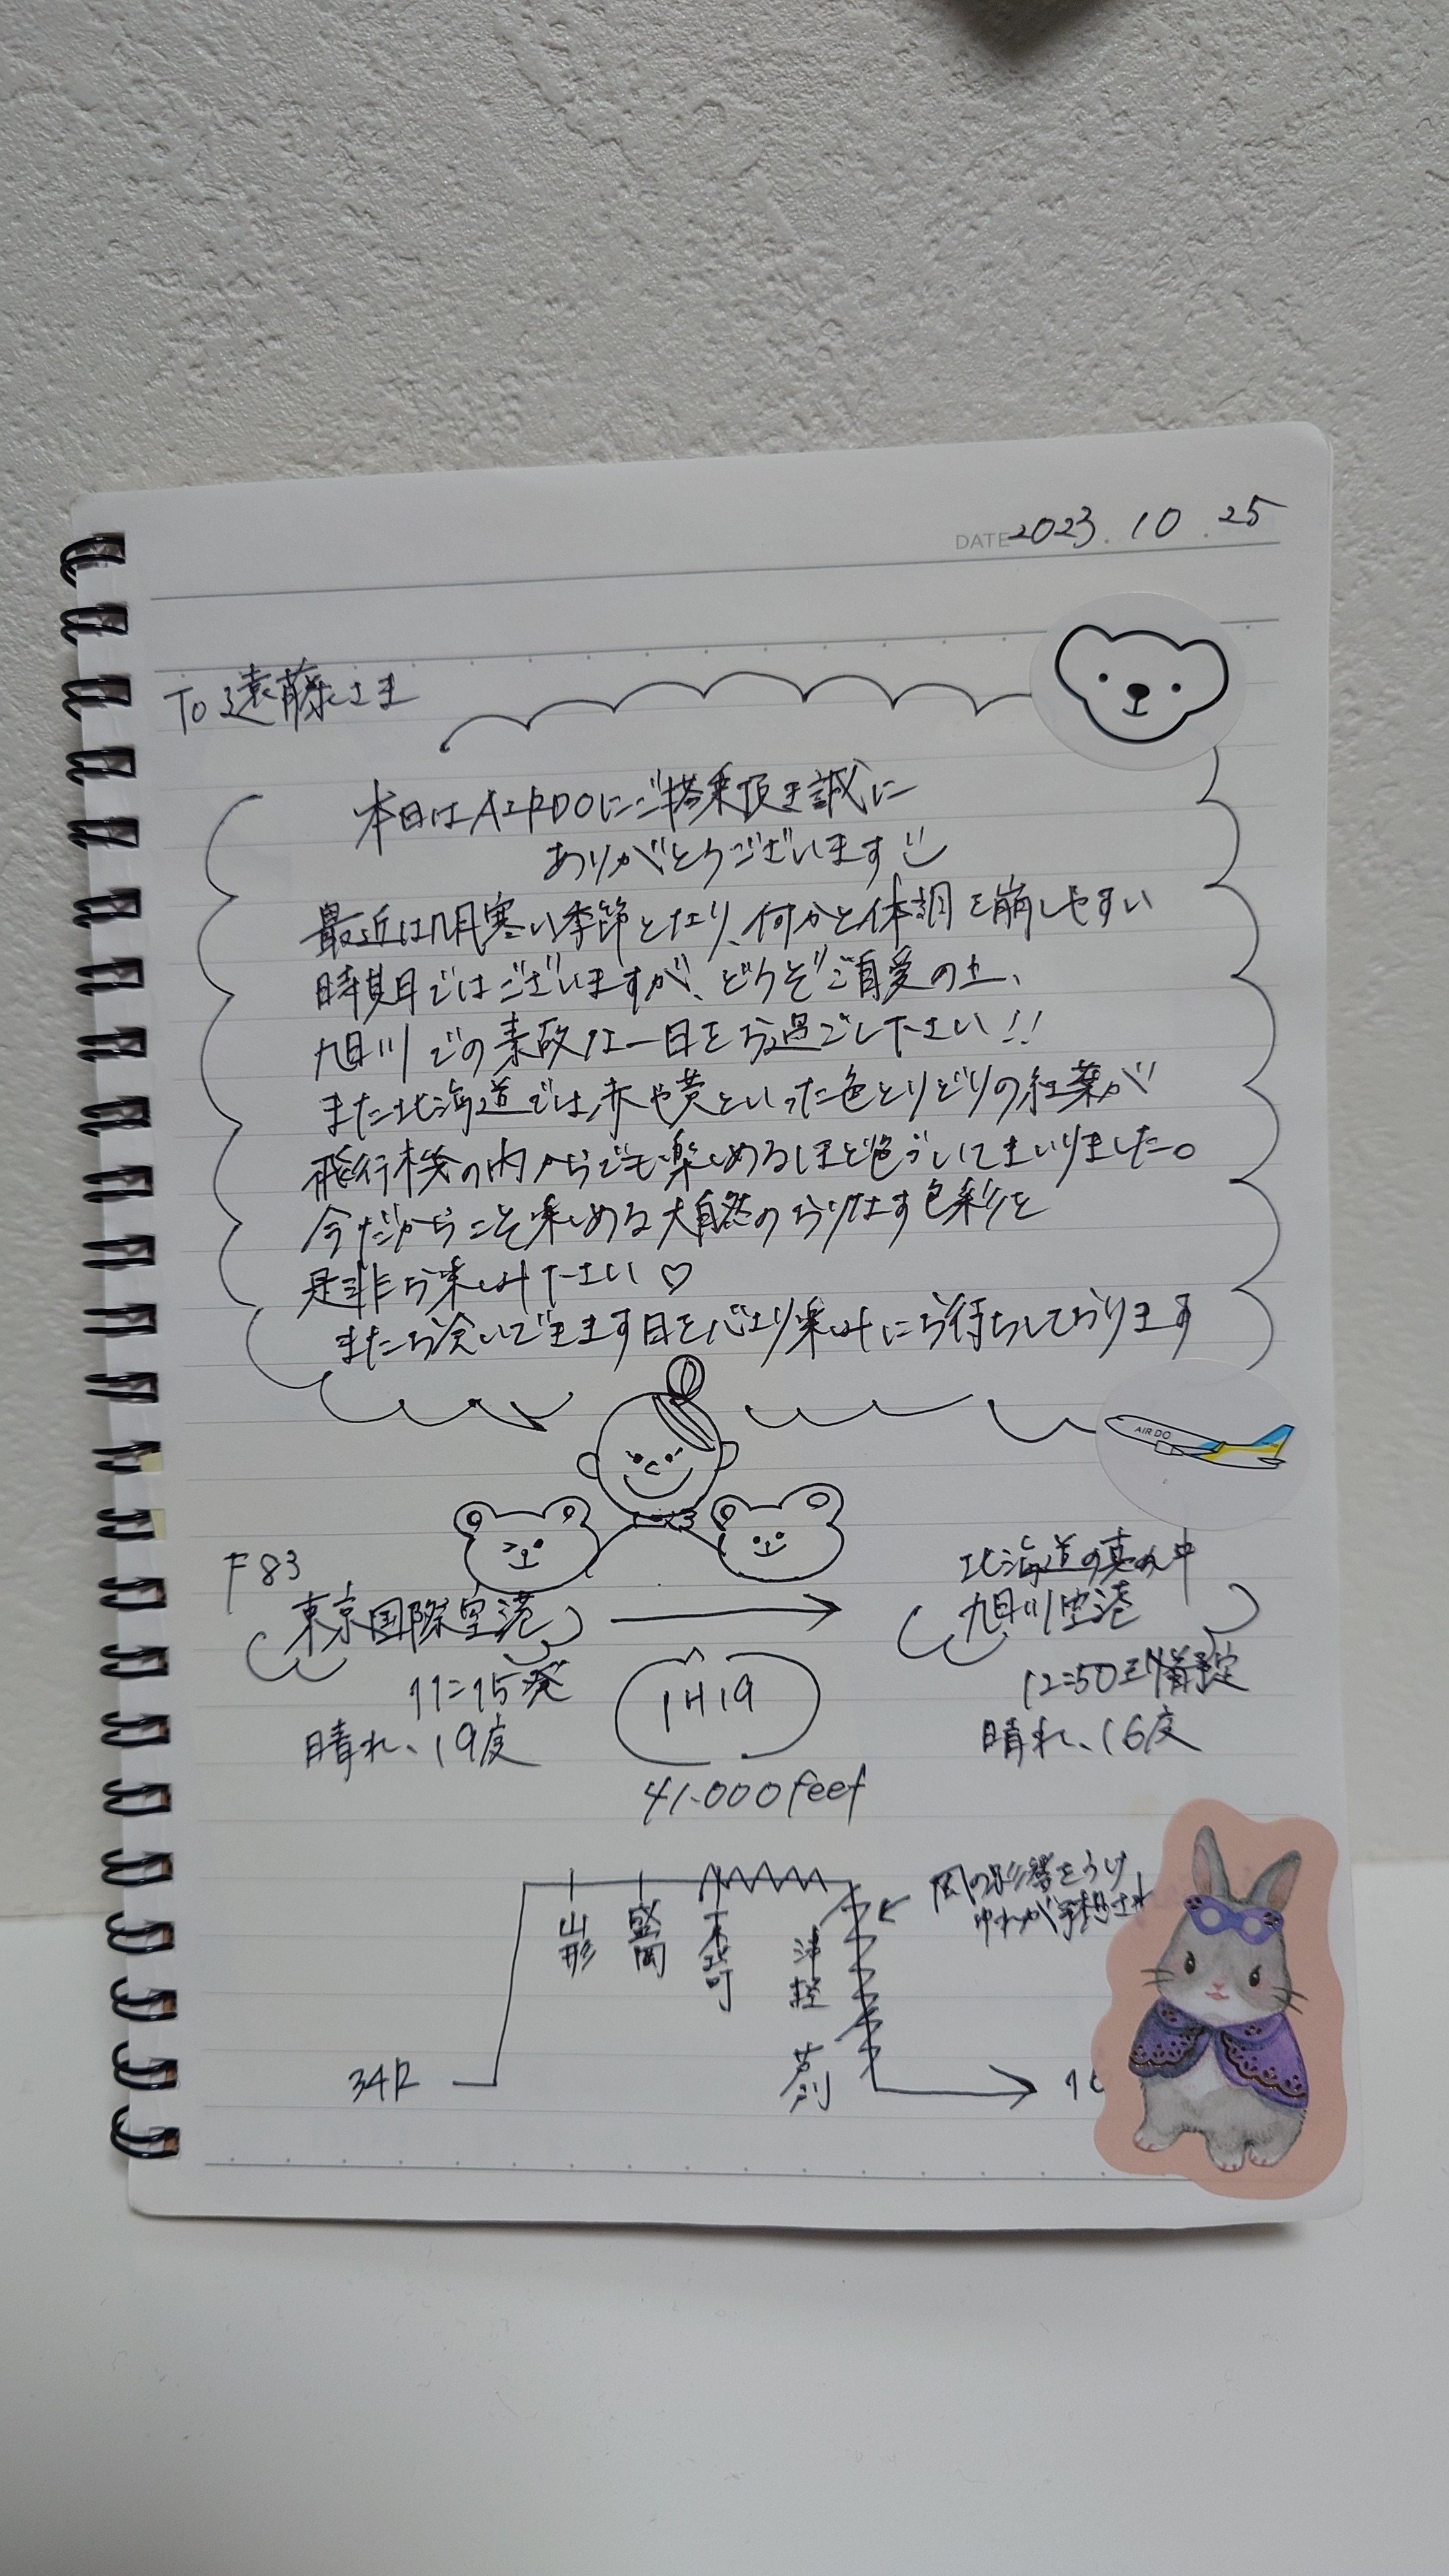 DATE 2023.10.25
To 遠藤さま
本日はAIRDOにご搭乗頂き誠に
ありがとうございます
最近は肌寒い季節となり、何かと体調を崩しやすい
時期ではございますが、どうぞご自愛の上、
旭川での素敵な一日をお過ごし下さい!!
また北海道では、赤や黄といった色とりどりの紅葉が
飛行機の内からでも楽しめるほど色づいてまいりました。
今だからこそ楽しめる大自然のおりなす色彩を
是非お楽しみ下さい♡
またお会いできます日を心より楽しみにお待ちしております
AIR DO
F83
東京国際空港
北海道の真ん中
旭川空港
11:15発
1H19
12:50到着予定
晴れ、19度
晴れ、16度
41.000feet
山形
盛岡
下北町
津軽
芦別
風の影響をうけ
ゆれが予想され
34R